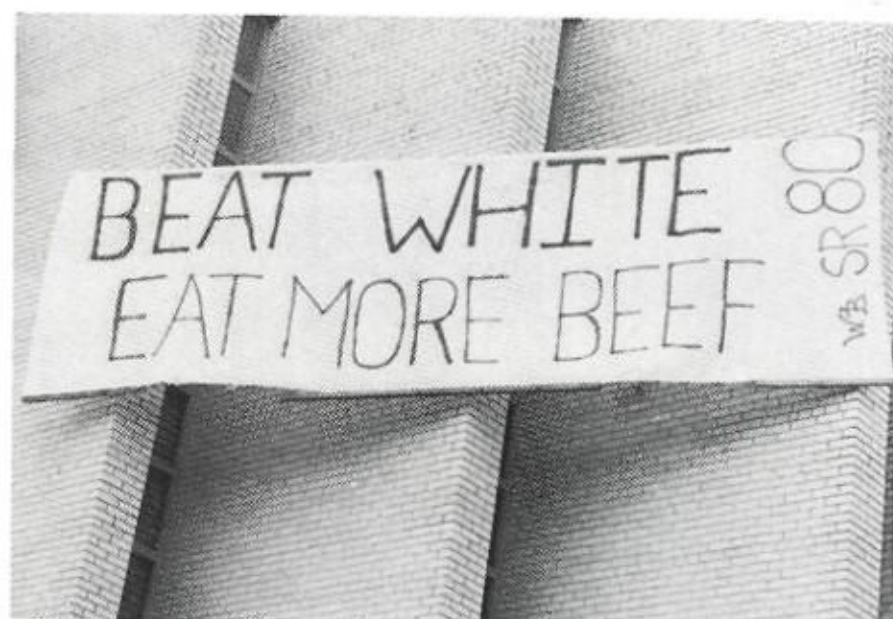 BEAT WHITE
EAT MORE BEEF
SR 80